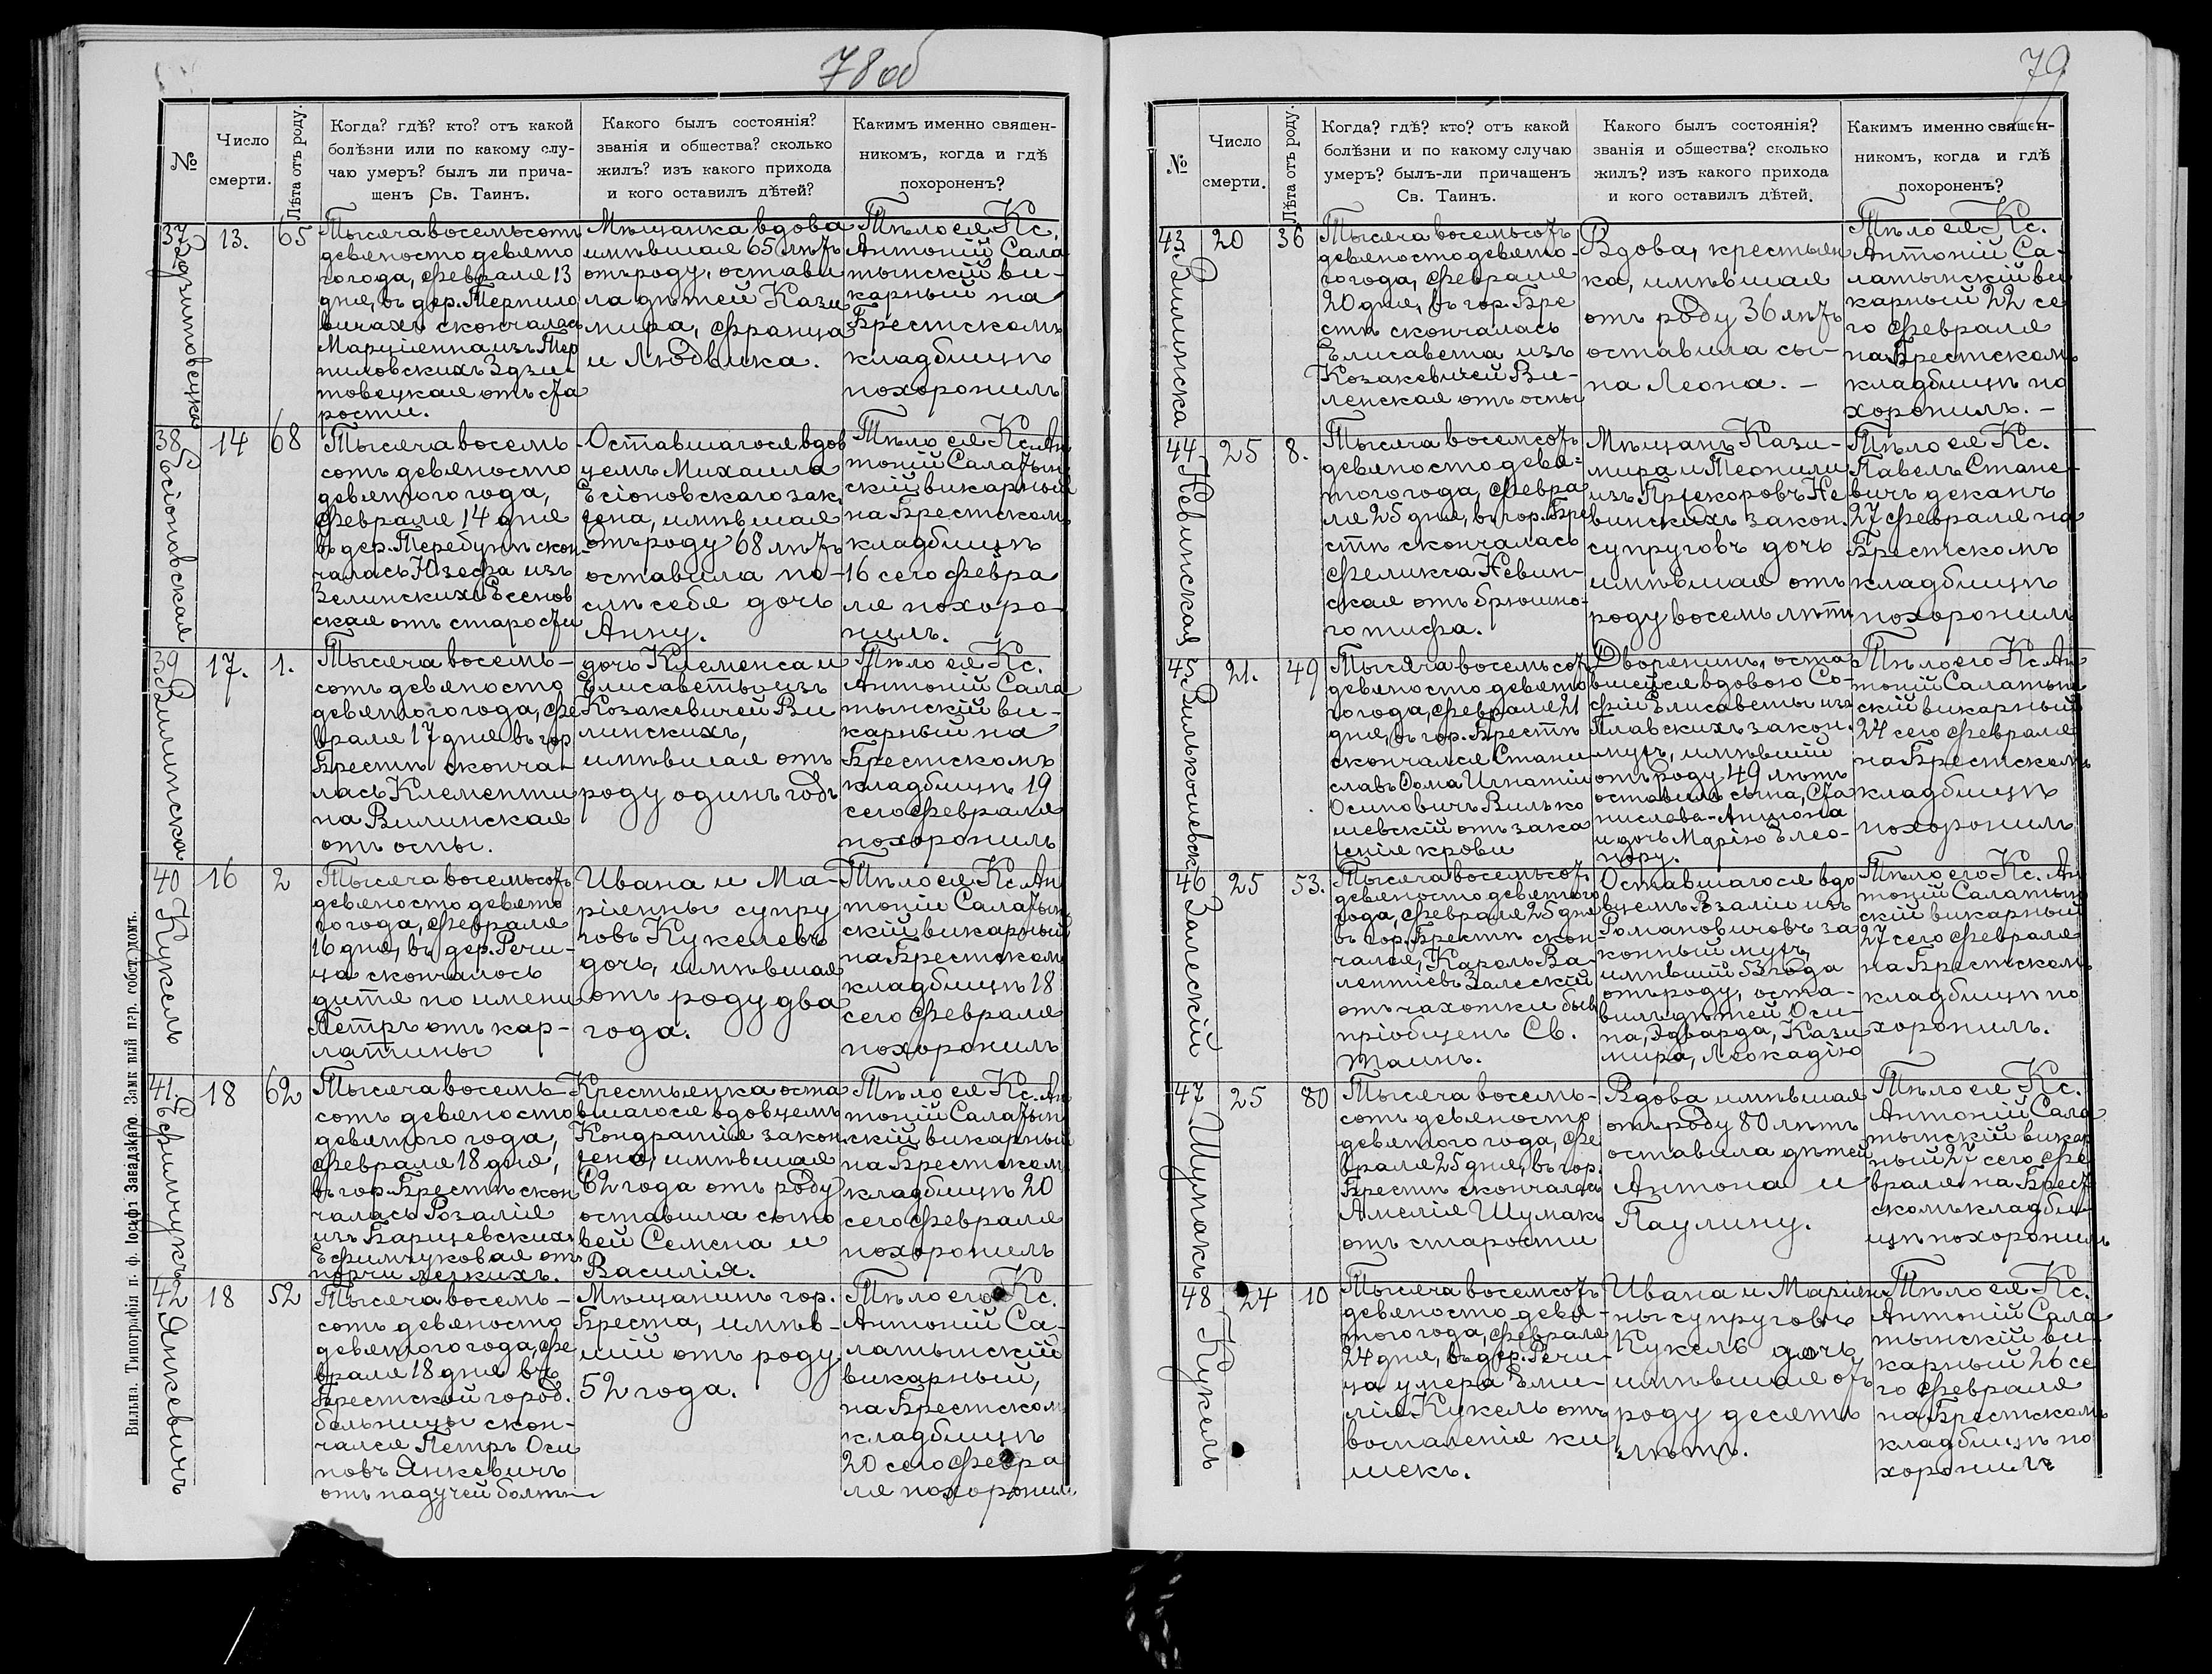 78 об
№
Число
смерти.
Лѣта отъ роду.
Когда? гдѣ? кто? отъ какой
болѣзни или по какому слу-
чаю умеръ? былъ ли прича-
щенъ Св. Таинъ.
Какого былъ состоянія?
званія и общества? сколько
жилъ? изъ какого прихода
и кого оставилъ дѣтей?
Какимъ именно священ-
никомъ, когда и гдѣ
похороненъ?
37
13.
65
Тысяча восемьсотъ
девяносто девято
го года, февраля 13
дня, въ дер. Терпило
вичахъ скончалась
Марціянна изъ Тер
пиловскихъ Здзи-
товецкая отъ ста
рости.
Мѣщанка вдова
имѣвшая 65 лѣтъ
отъ роду, остави
ла дѣтей Кази
мира, Франца
и Людвика.
Тѣло ея Кс.
Антоній Сала
тынскій ви-
карный на
Брестскомъ
кладбищѣ
похоронилъ
38
Есіоновская
14
68
Тысяча восемь
сотъ девяносто
девятого года,
февраля 14 дня
въ дер. Теребунѣ скон-
чалась Юзефа изъ
Зелинскихъ Есенов
ская отъ старости
Оставшагося вдов
цемъ Михаила
Есіоновскаго зак.
жена, имѣвшая
отъ роду 68 лѣтъ
оставила по-
слѣ себя дочь
Анну.
Тѣло ея Кс. Ан
тоній Салатын
скій викарный
на Брестскомъ
кладбищѣ
16 сего февра
ля похоро-
нилъ.
39
Вилинска
17.
1.
Тысяча восемь-
сотъ девяносто
девятого года, фе
враля 17 дня въ гор
Брестѣ сконча-
лась Клементи
на Вилинская
отъ оспы.
дочь Клеменса и
Елисаветы изъ
Козакевичей Ви
линскихъ,
имѣвшая отъ
роду одинъ годъ
Тѣло ея Кс.
Антоній Сала
тынскій ви-
карный на
Брестскомъ
кладбищѣ 19
сего февраля
похоронилъ
40
Кукель
16
2
Тысяча восемьсотъ
девяносто девято
го года, февраля
16 дня, въ дер. Речи-
ца скончалось
дитя по имени
Петръ отъ кар-
латины
Ивана и Ма-
ріянны супру
говъ Кукелевъ
дочь, имѣвшая
отъ роду два
года.
Тѣло ея Кс. Ан
тоній Салатын
скій викарный
на Брестскомъ
кладбищѣ 18
сего февраля
похоронилъ
41.
Ефимчукъ
18
62
Тысяча восемь-
сотъ девяносто
девятого года,
февраля 18 дня,
въ гор. Брестѣ скон
чалась Розалія
изъ Барщевскихъ
Ефимчуковая отъ
порчи легкихъ.
Крестьянка оста
вшагося вдовцемъ
Кондратія закон.
жена, имѣвшая
62 года отъ роду
оставила сыно
вей Семена и
Василія.
Тѣло ея Кс. Ан
тоній Салатын
скій викарный
на Брестскомъ
кладбищѣ 20
сего февраля
похоронилъ
42
Янкевичъ
18
52
Тысяча восемь-
сотъ девяносто
девятого года, фе
враля 18 дня въ
Брестской город.
больницы скон-
чался Петръ Оси
повъ Янкевичъ
отъ падучей болѣзни
Мѣщанинъ гор.
Бреста, имѣв-
шій отъ роду
52 года.
Тѣло его Кс.
Антоній Са-
латынскій
викарный,
на Брестском
кладбищѣ
20 сего февра
ля похоронилъ
Вильна. Типографія п. ф. Іосифъ Завадзкаго. Замк вый пер. собст. домъ.
79
№
Число
смерти.
Лѣта отъ роду.
Когда? гдѣ? кто? отъ какой
болѣзни и по какому случаю
умеръ? былъ-ли причащенъ
Св. Таинъ.
Какого былъ состоянія?
званія и общества? сколько
жилъ? изъ какого прихода
и кого оставилъ дѣтей.
Какимъ именно священ-
никомъ, когда и гдѣ
похороненъ?
43.
Вилинска
20
36
Тысяча восемьсотъ
девяносто девято-
го года, февраля
20 дня, въ гор. Бре
стѣ скончалась
Елисавета изъ
Козакевичей Ви-
ленская отъ оспы
Вдова, крестьян
ка, имѣвшая
отъ роду 36 лѣтъ
оставила сы-
на Леона. -
Тѣло ея Кс.
Антоній Са-
латынскій ви
карный 22 се
го февраля
на Брестскомъ
кладбищѣ по
хоронилъ. -
44
Невинская
25
8.
Тысяча восемсотъ
девяносто девя=
того года, февра
ля 25 дня, въ гор. Бре
стѣ скончалась
Феликса Невин-
ская отъ брюшно-
го тифа.
Мѣщанъ Кази-
мира и Теофили
изъ Прокоровъ Не
винскихъ закон.
супруговъ дочь
имѣвшая отъ
роду восемь лѣтъ
Тѣло ея Кс.
Павелъ Стане-
вичъ деканъ
27 февраля на
Брестскомъ
кладбищѣ
похоронилъ
45
Вилькошевскі
21.
49
Тысяча восемьсотъ
девяносто девято
го года, февраля 21
дня, въ гор. Брестѣ
скончался Стани
славъ Фома Игнатій
Осиповичъ Вилько
шевскій отъ зака
женія крови
Дворянинъ, оста-
вшейся вдовою Со-
фіи Елисаветы изъ
Плавскихъ закон.
мужъ, имѣвшій
отъ роду 49 лѣтъ
оставилъ сына, Ста
нислава-Антона
и дочь Марію Элео-
нору.
Тѣло его Кс. Ан
тоній Салатын
скій викарный
24 сего февраля
на Брестскомъ
кладбищѣ
похоронилъ
46
Залескій
25
53.
Тысяча восемьсотъ
девяносто девятого
года, февраля 25 дня
въ гор. Брестѣ скон-
чался, Кароль Ва-
лентіевъ Залескій
отъ чахотки бывъ
пріобщенъ Св.
Таинъ.
Оставшагося вдо
вцемъ Розаліи изъ
Романовичовъ за
конный мужъ,
имѣвшій 53 года
отъ роду, оста-
вилъ дѣтей Оси-
па, Эдварда, Кази
мира, Леокадію
Тѣло его Кс. Ан
тоній Салатын
скій викарный
27 сего февраля
на Брестскомъ
кладбищѣ по
хоронилъ.
47
Шумакъ
25
80
Тысяча восемь-
сотъ девяносто
девятого года, фе
враля 25 дня, въ гор.
Брестѣ скончалась
Амелія Шумакъ
отъ старости
Вдова имѣвшая
отъ роду 80 лѣтъ
оставила дѣтей
Антона и
Паулину.
Тѣло ея Кс.
Антоній Сала
тынскій викар
ный 27 сего фе
враля на Брест
скомъ кладби-
щѣ похоронилъ
48
Кукель
24
10
Тысяча восемсотъ
девяносто девя-
того года, февраля
24 дня, въ дер. Речи-
ца умера Эми-
лія Кукель отъ
воспаленія ки
шекъ.
Ивана и Маріян
ны супруговъ
Кукель дочь
имѣвшая отъ
роду десять
лѣтъ.
Тѣло ея Кс.
Антоній Сала
тынскій ви-
карный 26 се
го февраля
на Брестскомъ
кладбищѣ по
хоронилъ